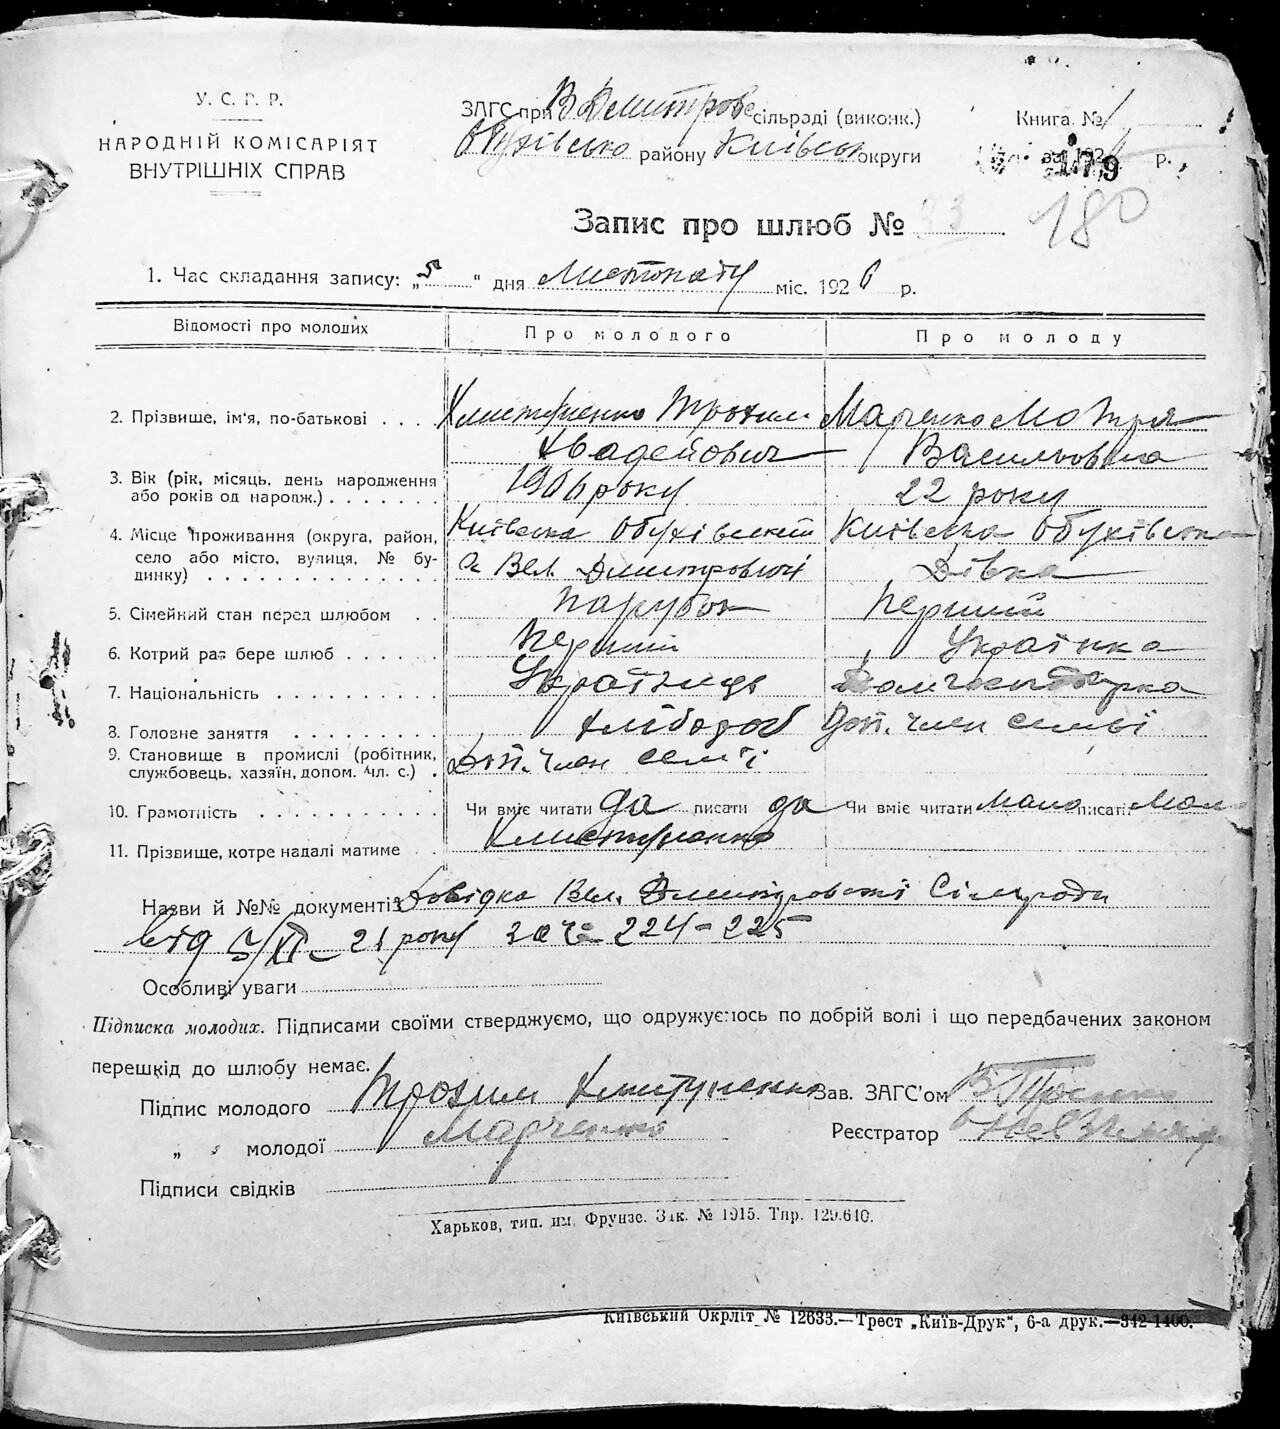 У. С. Р. Р.
НАРОДНІЙ КОМІСАРІЯТ
ВНУТРІШНІХ СПРАВ
ЗАГС при В Дмитров сільраді (виконк.)
району Київськ округи
Книга №
192 р.
179
180
Запис про шлюб № 33
1. Час складання запису: „5“ дня Листопату міс. 1926 р.
Відомості про молодих Про молодого Про молоду
2. Прізвище, ім'я, по-батькові . . . Хмистуненко Трохим Марченко Мотря
Васильовна
3. Вік (рік, місяць, день народження 1906 року 22 року
або років од народж.) . . . . . . .
4. Місце проживання (округа, район, Київська Обухівський Київська Обухівська
село або місто, вулиця, № бу- Вел. Дмитровичі Дівка
динку) . . . . . . . . . . . . .
5. Сімейний стан перед шлюбом . . Парубок Перший
6. Котрий раз бере шлюб . . . . . . Перший Українка
7. Національність . . . . . . . . . . Українець
8. Головне заняття . . . . . . . . . Хлібороб Доп. член семьї
9. Становище в промислі (робітник, Доп. член семії
службовець, хазяїн, допом. чл. с.) .
10. Грамотність . . . . . . . . . . . Чи вміє читати да писати да Чи вміє читати мало писати мало
11. Прізвище, котре надалі матиме . Хмистуненко
Назви й №№ документів Довідка Вел. Дмитровської Сільради
від 5/XI – 21 року за ч= 224–225
Особливі уваги
Підписка молодих. Підписами своїми стверджуємо, що одружуємось по добрій волі і що передбачених законом
перешкід до шлюбу немає.
Підпис молодого Трохим Хмистуненко Зав. ЗАГС'ом
„ „ молодої Марченко Реєстратор
Підписи свідків
Харьков, тип. им. Фрунзе. Зак. № 1915. Тир. 129.640.
Київський Окрліт № 12633.—Трест „Київ-Друк“, 6-а друк.—342-1400.